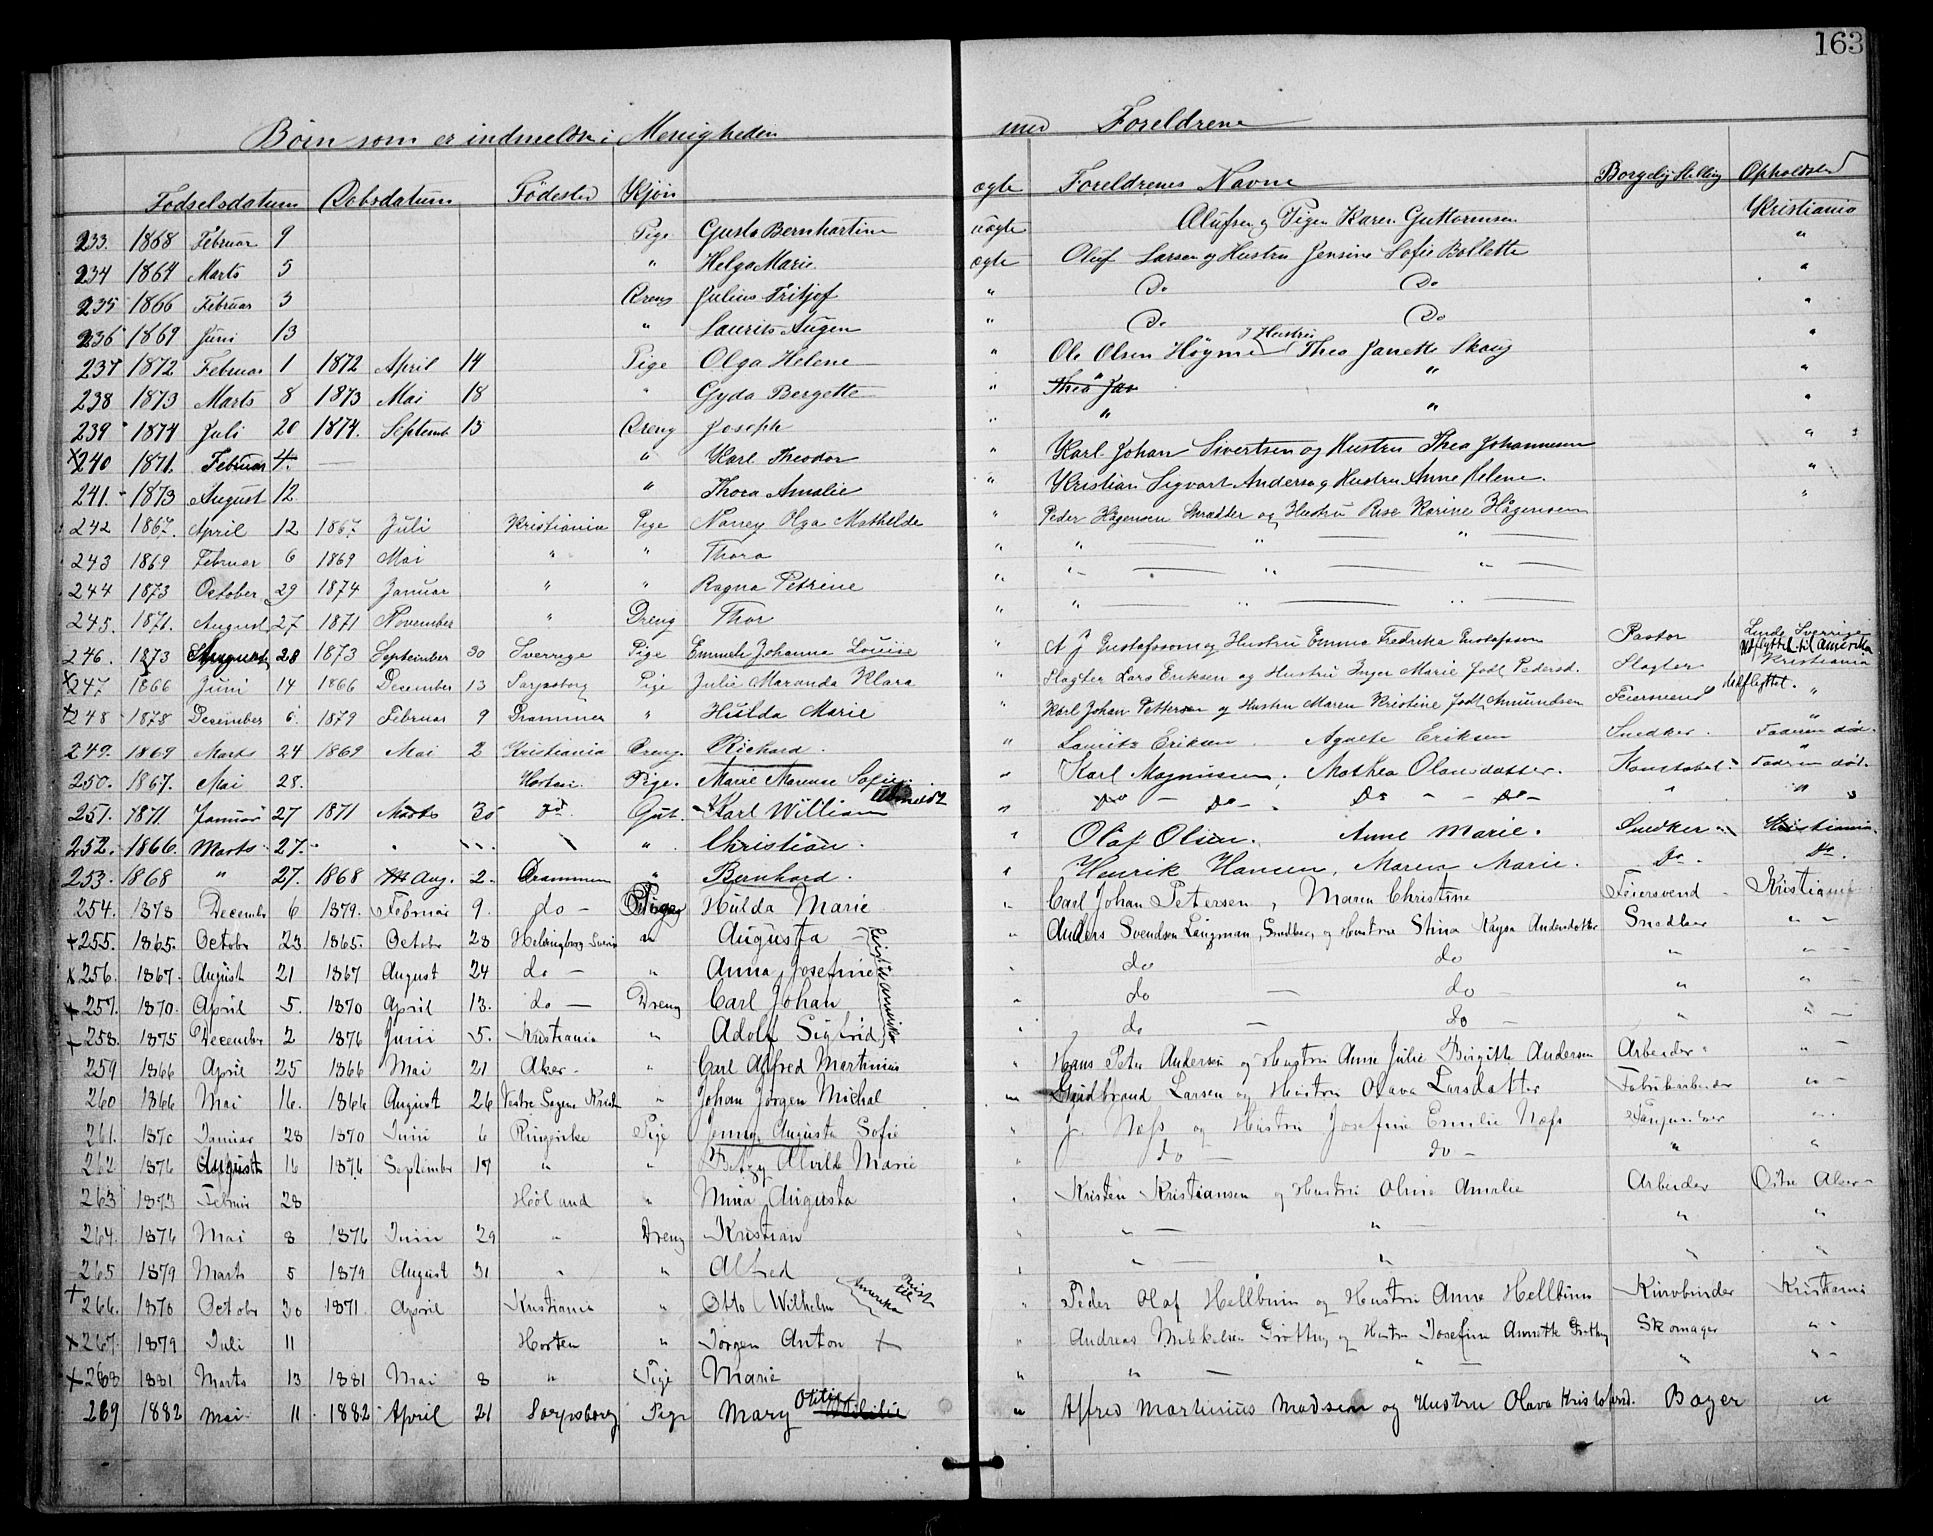 163
Børn som er indmeldte i Menigheden med Foreldrene
Fødselsdatum Døbsdatum Fødested Kjön ægte Foreldrenes Navne Borgelig Stilling Opholdsted
233. 1868 Februar 9 Pige Gusta Bernhartine uægte Olufsen og Pigen Karen Guttormsen Kristiania
234 1864 Marts 5 " Helga Marie ægte Oluf Larsen og Hustru Jensine Sofie Bollette "
235 1866 Februar 3 Dreng Julius Fritjof " Do Do "
236 1869 Juni 13 " Laurits Augen " Do Do "
237 1872 Februar 1 1872 April 14 Pige Olga Helene " Ole Olsen Høyme og Hustru Thea Janette Skaug "
238 1873 Marts 8 1873 Mai 18 " Gyda Bergette " Thea Jan " "
239 1874 Juli 20 1874. Septemb 13 Dreng Joseph " " " "
x240 1871. Februar 4. " Karl Theodor " Karl Johan Sivertsen og Hustru Thea Johannesen "
241. 1873 August 12. " Thora Amalie " Kristian Sigvart Anderse og Hustru Anne Helene. "
242 1867. April 12 1867. Juli Kristiania Pige Nanny Olga Mathilde " Peder Hågensen Skrædder og Hustru Rise Karine Hågensen "
243 1869 Februar 6 1869 Mai " " Thora " " " "
244 1873 October 29 1874 Januar " " Ragna Petrine " " " "
245. 1871. August 27 1871 November " Dreng Thor " " " "
246. 1873 August 28 1873 September 30 Sverrige Pige Emmele Johanna Louise " A J Gustafsson og Hustru Emma Fredrika Gustafsson Pastor Linde Sverrige Udflyttet til Amerika
x247 1866 Juni 14 1866 Desember 13 Sarpsborg Pige Julie Maranda Klara " Slagter Lars Eriksen og Hustru Inger Marie født Pedersd. Slagter Kristiania
+248 1878 Desember 6. 1879 Februar 9 Drammen " Hulda Marie " Karl Johan Pettersen og Hustru Maren Kristine født Amundsen Feiersvend Udflyttet. "
249. 1869 Marts 24 1869 Mai 2 Kristiania Dreng. Rickard. " Lauritz Eriksen. Agnete Eriksen Snedker. Faderen død.
250. 1867. Mai 28. Horten. Pige. Marie Sofie. " Karl Magnusen, Mathea Olausdatter. Konstabel. Faderen død.
251. 1871. Januar 27 1871 Marts 30 do. Gut. Karl William Udmeldt " Do - Do -, Do - - Do - " " "
252. 1866. Marts 27. " Christian. " Olaf Olsen. Anne Marie. Snedker Kristiania.
253. 1868 " 27. 1868 Aug. 2. Drammen " Bernhard. " Henrik Hansen, Maren Marie. Do. Do.
254. 1878 Decembr 6 1879. Februar 9. do - Pige Hulda Marie " Carl Johan Petersen, Maren Christine Feiersvend Kristiania
+255. 1865. Octobr 23 1865. Octobr 28 Helsingborg Sverig " Augusta " Anders Svendsen Lingman, Snedker, og Hustru Stina Kajsa Andersdotter Snedker " -
x256. 1867. August 21 1867 August 24 do - " Anna Josefine " do do " " -
+257. 1870. April 5. 1870 April 13. do - Dreng Carl Johan " do - do - " " -
+258. 1875 December 2 1876 Juni 5. Kristiania " Adolf Sigfrid rejst til Amerika " do - do - " " -
259 1866 April 25 1866 Mai 21 Aker - " Carl Alfred Martinius " Hans Peter Andersen og Hustru Anne Julie Birgitte Andersen Arbeider " -
260 1866 Mai 16. 1866 August 26 Vestre Sagene Krist " Johan Jørgen Michal " Gudbrand Larsen og Hustru Olava Larsdatter Fabrikarbeider " -
261. 1870 Januar 28 1870 Juni 6 Ringerike Pige Jenny Augusta Sofie " J. Næss og Hustru Josefine Emilie Næss "
262 1876 August 16 1876 September 17 " " Betzy Alvilde Marie " do - do - " "
263 1873 Februar 28 Høland " Mina Augusta " Kristen Kristiansen og Hustru Oline Amalie Arbeider Østre Aker -
264. 1876 Mai 8 1876 Juni 29 " Dreng Kristian " " - " " "
265 1879 Marts 5 1879 August 31 " " Alfred " " - " " "
+266. 1870 Octobr 30 1871. April Kristiania " Otto Wilhelm Reist til Amerika " Peder Olaf Hellbum og Hustru Anne Hellbum Kurvbinder Kristiania
x267. 1879 Juli 11 Horten " Jørgen Anton + " Andreas Mikkelsen Grotting og Hustru Josefine Annette Grotting Skomager " "
x268 1881 Marts 13 1881 Mai 8 " Pige Marie " " - " - " " -
269 1882 Mai 11 1882 April 21 Sarpsborg Pige Mary Otilie " Alfred Martinius Madsen og Hustru Olava Kristofersd. Bager "